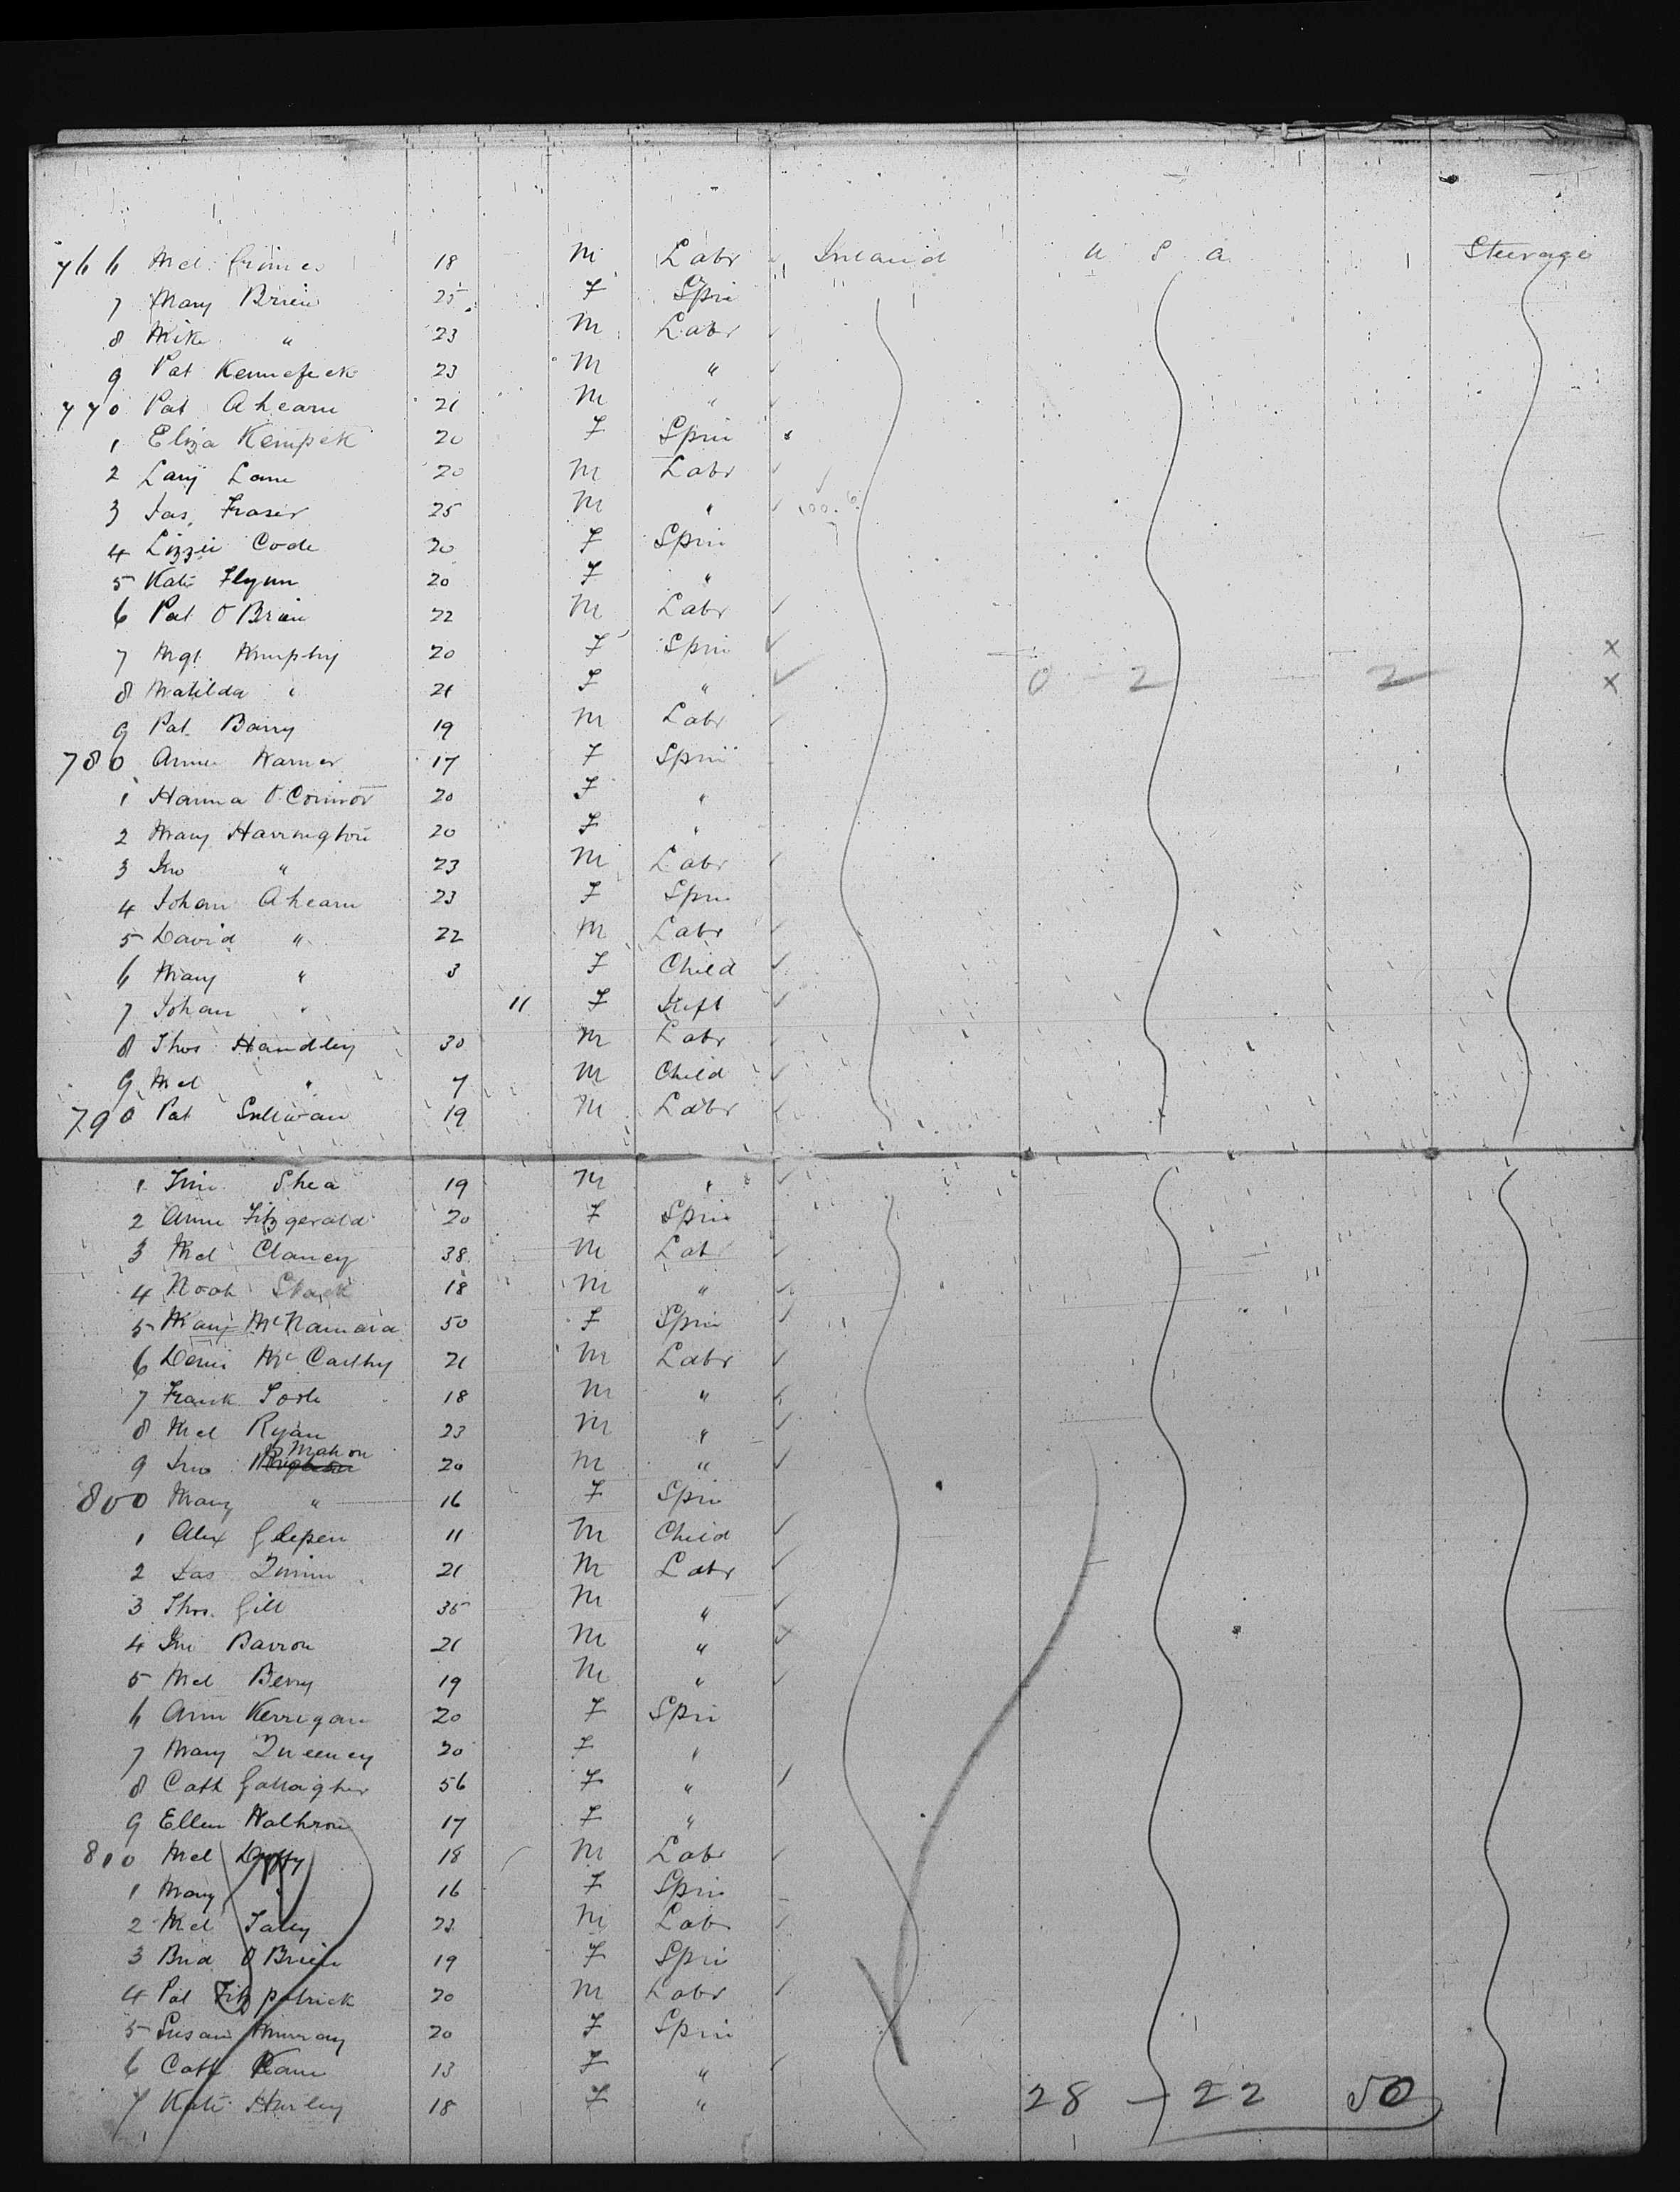 766 Mcl Grimes 18 M Labr Ireland U S A Steerage
7 Mary Brien 25 F Spin
8 Mike " 23 M Labr
9 Pat Kennefick 23 M "
770 Pat Ahearn 21 M "
1 Eliza Kempek 20 F Spin
2 Lary Lane 20 M Labr
3 Jas. Fraser 25 M "
4 Lizzie Code 20 F Spin
5 Kate Flynn 20 F "
6 Pat O Brien 22 M Labr
7 Mgt Murphy 20 F Spin x
8 Matilda " 21 F " 0 2 2 x
9 Pat Barry 19 M Labr
780 Annie Warner 17 F Spin
1 Hanna O Connor 20 F "
2 Mary Harrington 20 F "
3 Jno " 23 M Labr
4 Johan Ahearn 23 F Spin
5 David " 22 M Labr
6 Mary " 3 F Child
7 Johan " 11 F Inft
8 Thos Handley 30 M Labr
9 Mcl " 7 M Child
790 Pat Sullivan 19 M Labr
1 Tim Shea 19 M "
2 Anne Fitzgerald 20 F Spin
3 Mcl Clancy 38 M Labr
4 Noah Slack 18 M "
5 Mary McNamara 50 F Spin
6 Denis McCarthy 21 M Labr
7 Frank Toole 18 M "
8 Mcl Ryan 23 M "
9 Jno McMahon 20 M "
800 Mary " 16 F Spin
1 Alex 11 M Child
2 Jas Quinn 21 M Labr
3 Thos. Gill 35 M "
4 Jno Barron 21 M "
5 Mcl Berry 19 M "
6 Ann Kerrigan 20 F Spin
7 Mary Queeney 20 F "
8 Cath Gallagher 56 F "
9 Ellen Walhron 17 F "
810 Mcl Duffy 18 M Labr
1 Mary " 16 F Spin
2 Mcl Tally 23 M Labr
3 Brid O Brien 19 F Spin
4 Pat Fitzpatrick 20 M Labr
5 Susan Murray 20 F Spin
6 Cath Kane 13 F "
7 Kate Hurley 18 F " 28 - 22 50